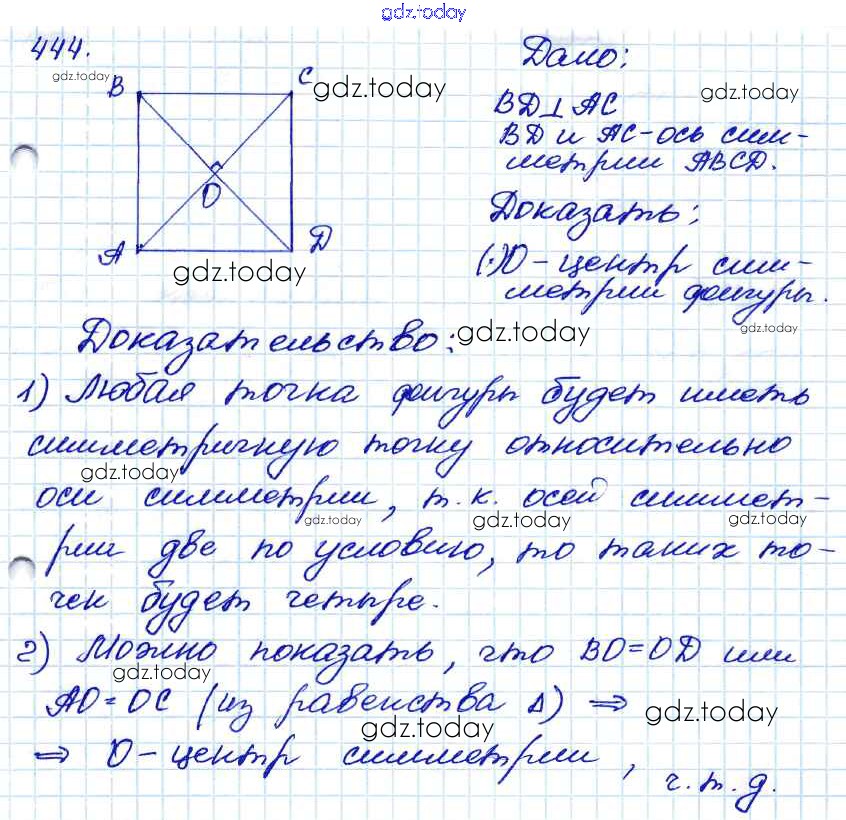 gdz.today
444.
gdz.today
B
C
gdz.today
O
A
D
gdz.today
Дано:
gdz.today
BD⊥AC
BD и AC-ось сим-
метрии ABCD.
Доказать:
(·)O-центр сим-
метрии фигуры.
gdz.today
Доказательство:
gdz.today
1) Любая точка фигуры будет иметь
симметричную точку относительно
gdz.today
оси симметрии, т.к. осей симмет-
gdz.today gdz.today gdz.today
рии две по условию, то таких то-
чек будет четыре.
2) Можно показать, что BO=OD или
gdz.today
AO=OC (из равенства Δ) ⇒
gdz.today gdz.today
⇒ O-центр симметрии,
ч.т.д.